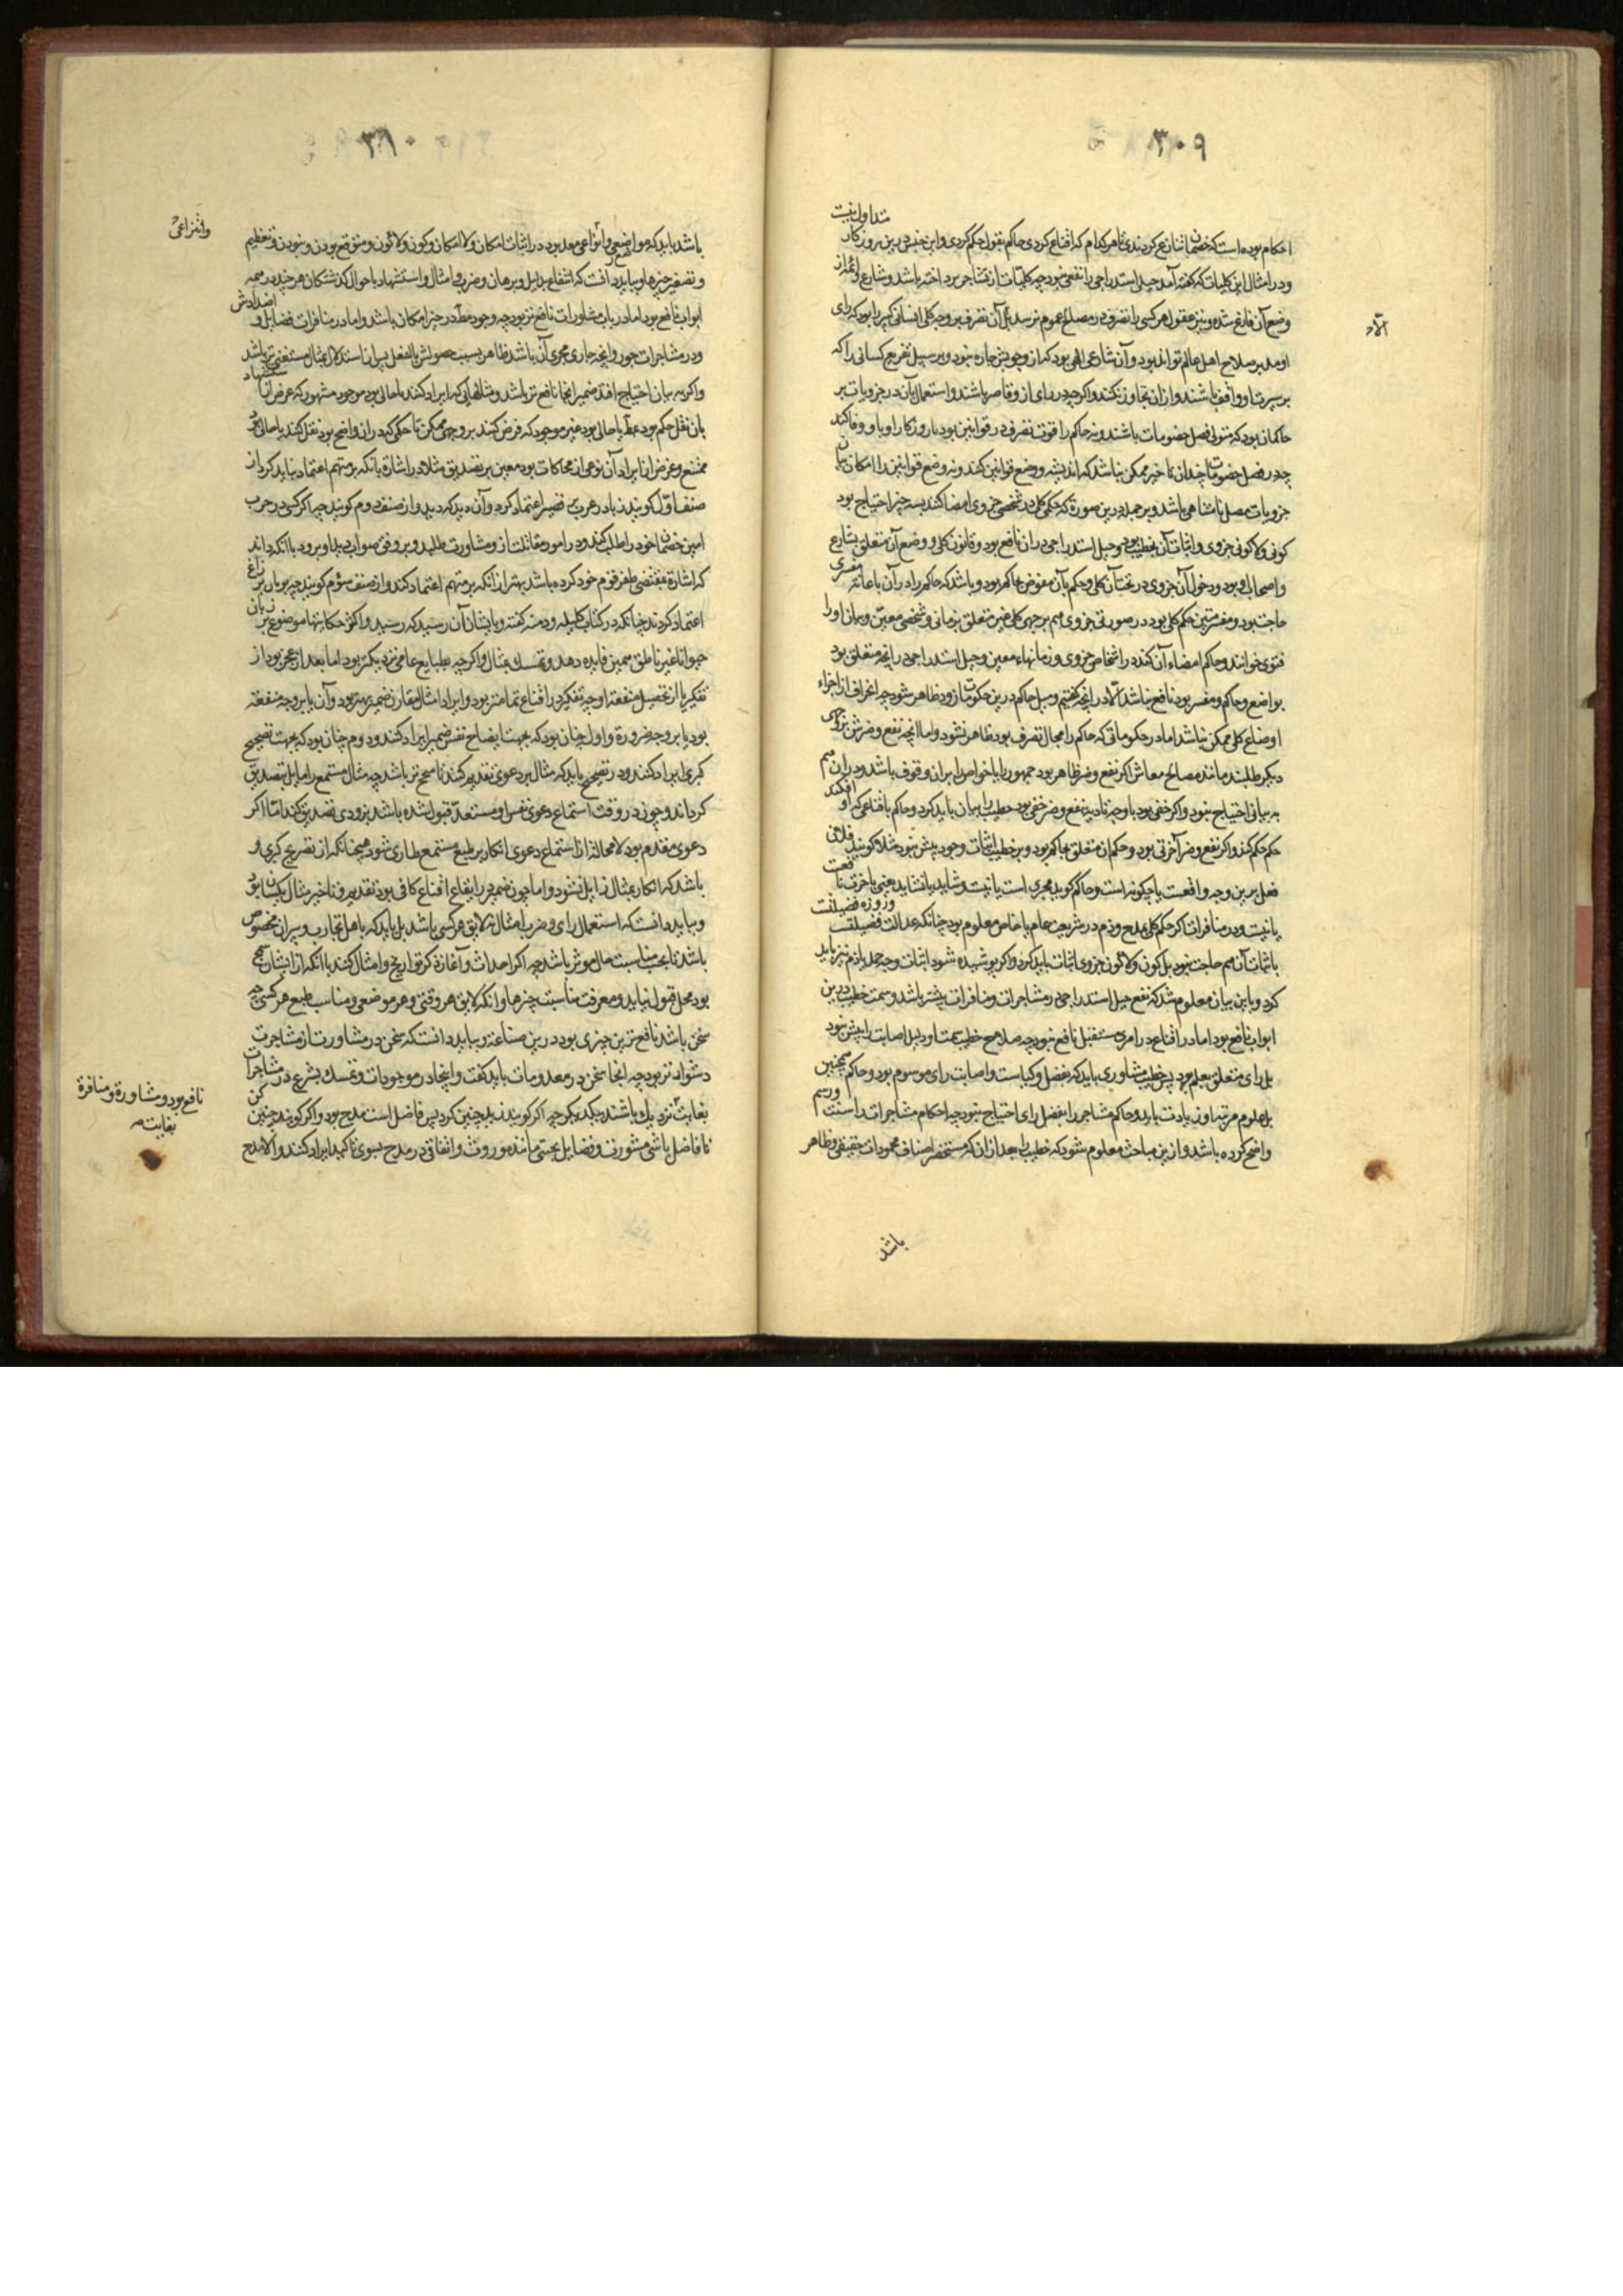 ۳۰۹
متداول نیست
احکام بوده است که خصمان تنازع کردندی تا هر کدام که اقناع کردی حاکم بقول او حکم کردی و این جنس درین روزکار
و در امثال این کلیات که کفته آمد حیل استدراجی را نفعی نبود چه کلیات از تشاجر برداخته باشد و شارع و ائمه از
وضع آن فارغ شده و نیز عقول هر کسی را تصرف در مصلحة عموم نرسد بل آن تصرف بر وجه کلی انسانی کبیر را بود که رای
او مدبر صلاح اهل عالم تواند بود و آن شارعی الهی بود که از وجودش چاره نبود و بر سبیل تفریع کسانی را که
بر سیرت او واقف باشند و از آن تجاوز نکنند و اکرچه در رای از و قاصر باشند و استعمال آن در جزویات بر
حاکمان بود که متولی فصل خصومات باشند و نه حاکم را قوت تصرف در قوانین بود یا روزکار او باو وفا کند
چه در فصل خصومات چندان تاخیر ممکن نباشد که اندیشه و وضع قوانین کنند و نه وضع قوانین را امکان بیان
جزویات مفصل نامتناهی باشد و بر جمله درین صورة که حکمی کلی در شخصی جزوی امضا کند بسه چیز احتیاج بود
کونی و لاکونی جزوی و اثبات آن بخطیب بود و حیل استدراجی در آن نافع بود و قانون کلی و وضع آن متعلق بشارع
و اصحاب او بود و دخول آن جزوی در تحت آن کلی و حکم بآن مفوض بحاکم بود و باشد که حاکم را در آن باعانة مفسری
حاجت بود و مفسر مبین حکم کلی بود در صورتی جزوی هم بر جهی کلی غیر متعلق بزمانی و شخصی معین و بیان او را
فتوی خوانند و حاکم امضاء آن کند در اشخاص جزوی و زمانهاء معین و حیل استدراجی در آنچه متعلق بود
بواضع و حاکم و مفسر بود نافع نباشد الا در آنچه کفتیم و میل حاکم درین حکومات زود ظاهر شود چه انحراف از اجراء
اوضاع کلی ممکن نباشد اما در حکوماتی که حاکم را مجال تصرف بود ظاهر نشود و اما آنچه نفع و ضرش بزودی
دیکر طلبند مانند مصالح معاش اکر نفع و ضر ظاهر بود جمهور را یا خواص را بران وقوف باشد و در ان هم
به بیانی احتیاج نبود و اکر خفی بود یا وجه تادیه بنفع و ضر خفی بود خطیب را بیان باید کرد و حاکم باقناعی که او افکند
حکم کند و اکر نفع و ضر آخرتی بود و حکم ان متعلق بحاکم بود و بر خطیب اثبات وجود بیش نبود مثلا کوید فلان
فعل برین وجه واقعست یا چکونه است و حاکم کوید مجری است یا نیست و شاید یا نشاید یعنی باخرت نافعست
یا نیست و در منافرات اکر حکم کلی بمدح و ذم در شریعت عام یا خاص معلوم بود چنانکه عدالت فضیلتست و روزه فضیلتست
باثبات آن هم حاجت نبود بل کون و لاکون جزوی اثبات باید کرد و اکر پوشیده شود اثبات وجه حمد یا ذم نیز باید
کرد و باین بیان معلوم شد که نفع حیل استدراجی در مشاجرات و منافرات بیشتر باشد و سمت خطیب درین
ابواب نافع بود اما در اقناع در امری مستقبل نافع نبود چه صلاح خطیب سمت او دلیل اصابت رایش نبود
بل رای متعلق بعلم بود پس خطیب مشاوری باید که بفضل و کیاست و اصابت رای موسوم بود و حاکم همچنین
بعلوم مرتبه او زیادت باید و حاکم مشاجر را بفضل رای احتیاج نبود چه احکام مشاجرات را سنت و رسم
واضح کرده باشد و ازین مباحث معلوم شود که خطیب را بعد از ان که مستحضر اصناف محمودات حقیقی و ظاهر
باشد
الآد
۳۱۰
باشد باید که مواضعی و انواعی معد بود در اثبات امکان و لا امکان و کون و لاکون و متوقع بودن و نبودن و تعظیم
و تصغیر چیزها و بباید دانست که انتفاع بدلیل و برهان و ضرب امثال و استشهاد باحوال کذشتکان هر چند در همه
ابواب نافع بود اما در باب مشاورات نافع‌تر بود چه وجود مطلب در حیز امکان باشد و اما در منافرات فضایل و اضدادش
و در مشاجرات جور و آنچه جاری مجری آن باشد ظاهر بسبب حصولش بالفعل پس از استدلال بمثال مستغنی‌تر باشد
و اکر به بیان احتیاج افتد ضمیر آنجا نافع‌تر باشد و مثالهایی که ایراد کنند یا حالی بود موجود مشهور که غرض از ان استشهاد
بان نقل حکم بود بمطلب یا حالی بود غیر موجود که فرض کنند بر وجهی ممکن تا حکمی که در ان واضح بود نقل کنند یا حالی بود
ممتنع و غرض از ایراد آن نوعی از محاکات بود معین بر تصدیق مثلا در اشارة بانکه بر متهم اعتماد نباید کرد از
صنف اول کویند زید در حرب بر قصیر اعتماد کرد و آن دید که دید و از صنف دوم کویند چه اکر کسی در حرب
امین خصمان خود را طلب کند و در امور مقاتلت از و مشاورت طلبد و بر وفق صواب دید او برود با آنکه داند
که اشارة بمقتضی ظفر قوم خود کرده باشد بهتر از آنکه بر متهم اعتماد کند و از صنف سوم کویند چه بومان بر زاغ
اعتماد کردند چنانکه در کتاب کلیله و دمنه کفته و بایشان آن رسید که رسید و اکثر حکایتها موضوع بر زبان
حیوانا غیر ناطق همین فایده دهد و تمسک بمثال و اکر چه بطبایع عامی نزدیکتر بود اما بعد از عجز بود از
تفکر یا از تحصیل منفعة او چه تفکر در اقناع تمامتر بود و ایراد امثال مقارن ضمیر بهتر بود و آن یا بر وجه منفعة
بود یا بر وجه ضرورة و اول چنان بود که بجهت ایضاح نفس ضمیر ایراد کنند و دوم چنان بود که بجهت تصحیح
کبری ایراد کنند و در تصحیح باید که مثال بر دعوی تقدیم کنند تا منجح‌تر باشد چه مثال مستمع را مایل بتصدیق
کرداند و چون در وقت استماع دعوی نفس او مستعد قبول شده باشد بزودی تصدیق کند اما اکر
دعوی مقدم بود لا محالة از استماع دعوی انکار بر طبع مستمع طاری شود همچنانکه از تصریح کبری و
باشد که انکار بمثال زایل نشود و اما چون ضمیر در ایقاع اقناع کافی بود تقدیم و تاخیر مثال یکسان بود
و بباید دانست که استعمال رای و ضرب امثال نه لایق هر کسی باشد بل باید که باهل تجارب و پیران مخصوص
باشد تا بحسب مناسبت حال موثر باشد چه اکر احداث و آغازه کر تواریخ و امثال کنند با آنکه از ایشان سمج
بود محل قبول نیابد و معرفت مناسبت چیزها و آنکه لایق هر وقتی و هر موضعی و مناسب طبع هر کسی چه
سخن باشد نافع‌ترین چیزی بود درین صناعة و بباید دانست که سخن در مشاورت از مشاجرت
دشوارتر بود چه آنجا سخن در معدومات باید کفت و اینجا در موجودات و تمسک بشرع در مشاجرات
بغایت نزدیک باشند بیکدیکر چه اکر کویند زید چنین کرد پس فاضل است مدح بود و اکر کویند چنین کن
تا فاضل باشی مشورت و فضایل بختی مانند موروث و اتفاقی در مدح نبوی تاکید ایراد کنند و الا مدح
وانتزاعی
نافع بود و مشاورة و منافرة
بغایت صح